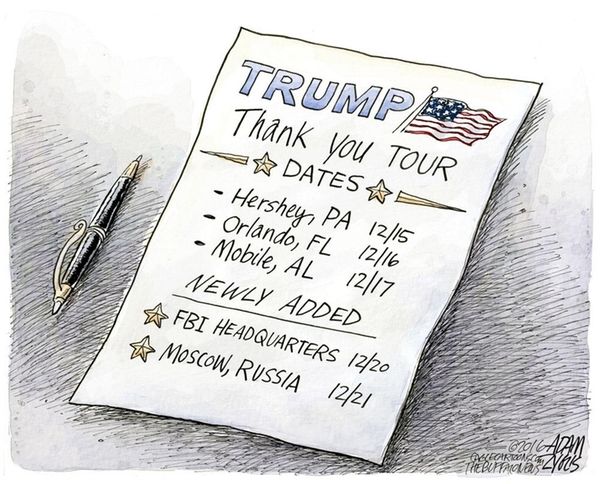 TRUMP
Thank you TOUR
DATES
- Hershey, PA 12/15
- Orlando, FL 12/16
- Mobile, AL 12/17
NEWLY ADDED
FBI HEADQUARTERS 12/20
MOSCOW, RUSSIA 12/21
©2016 ADAM
THE BUFFALO NEWS ZYGLIS